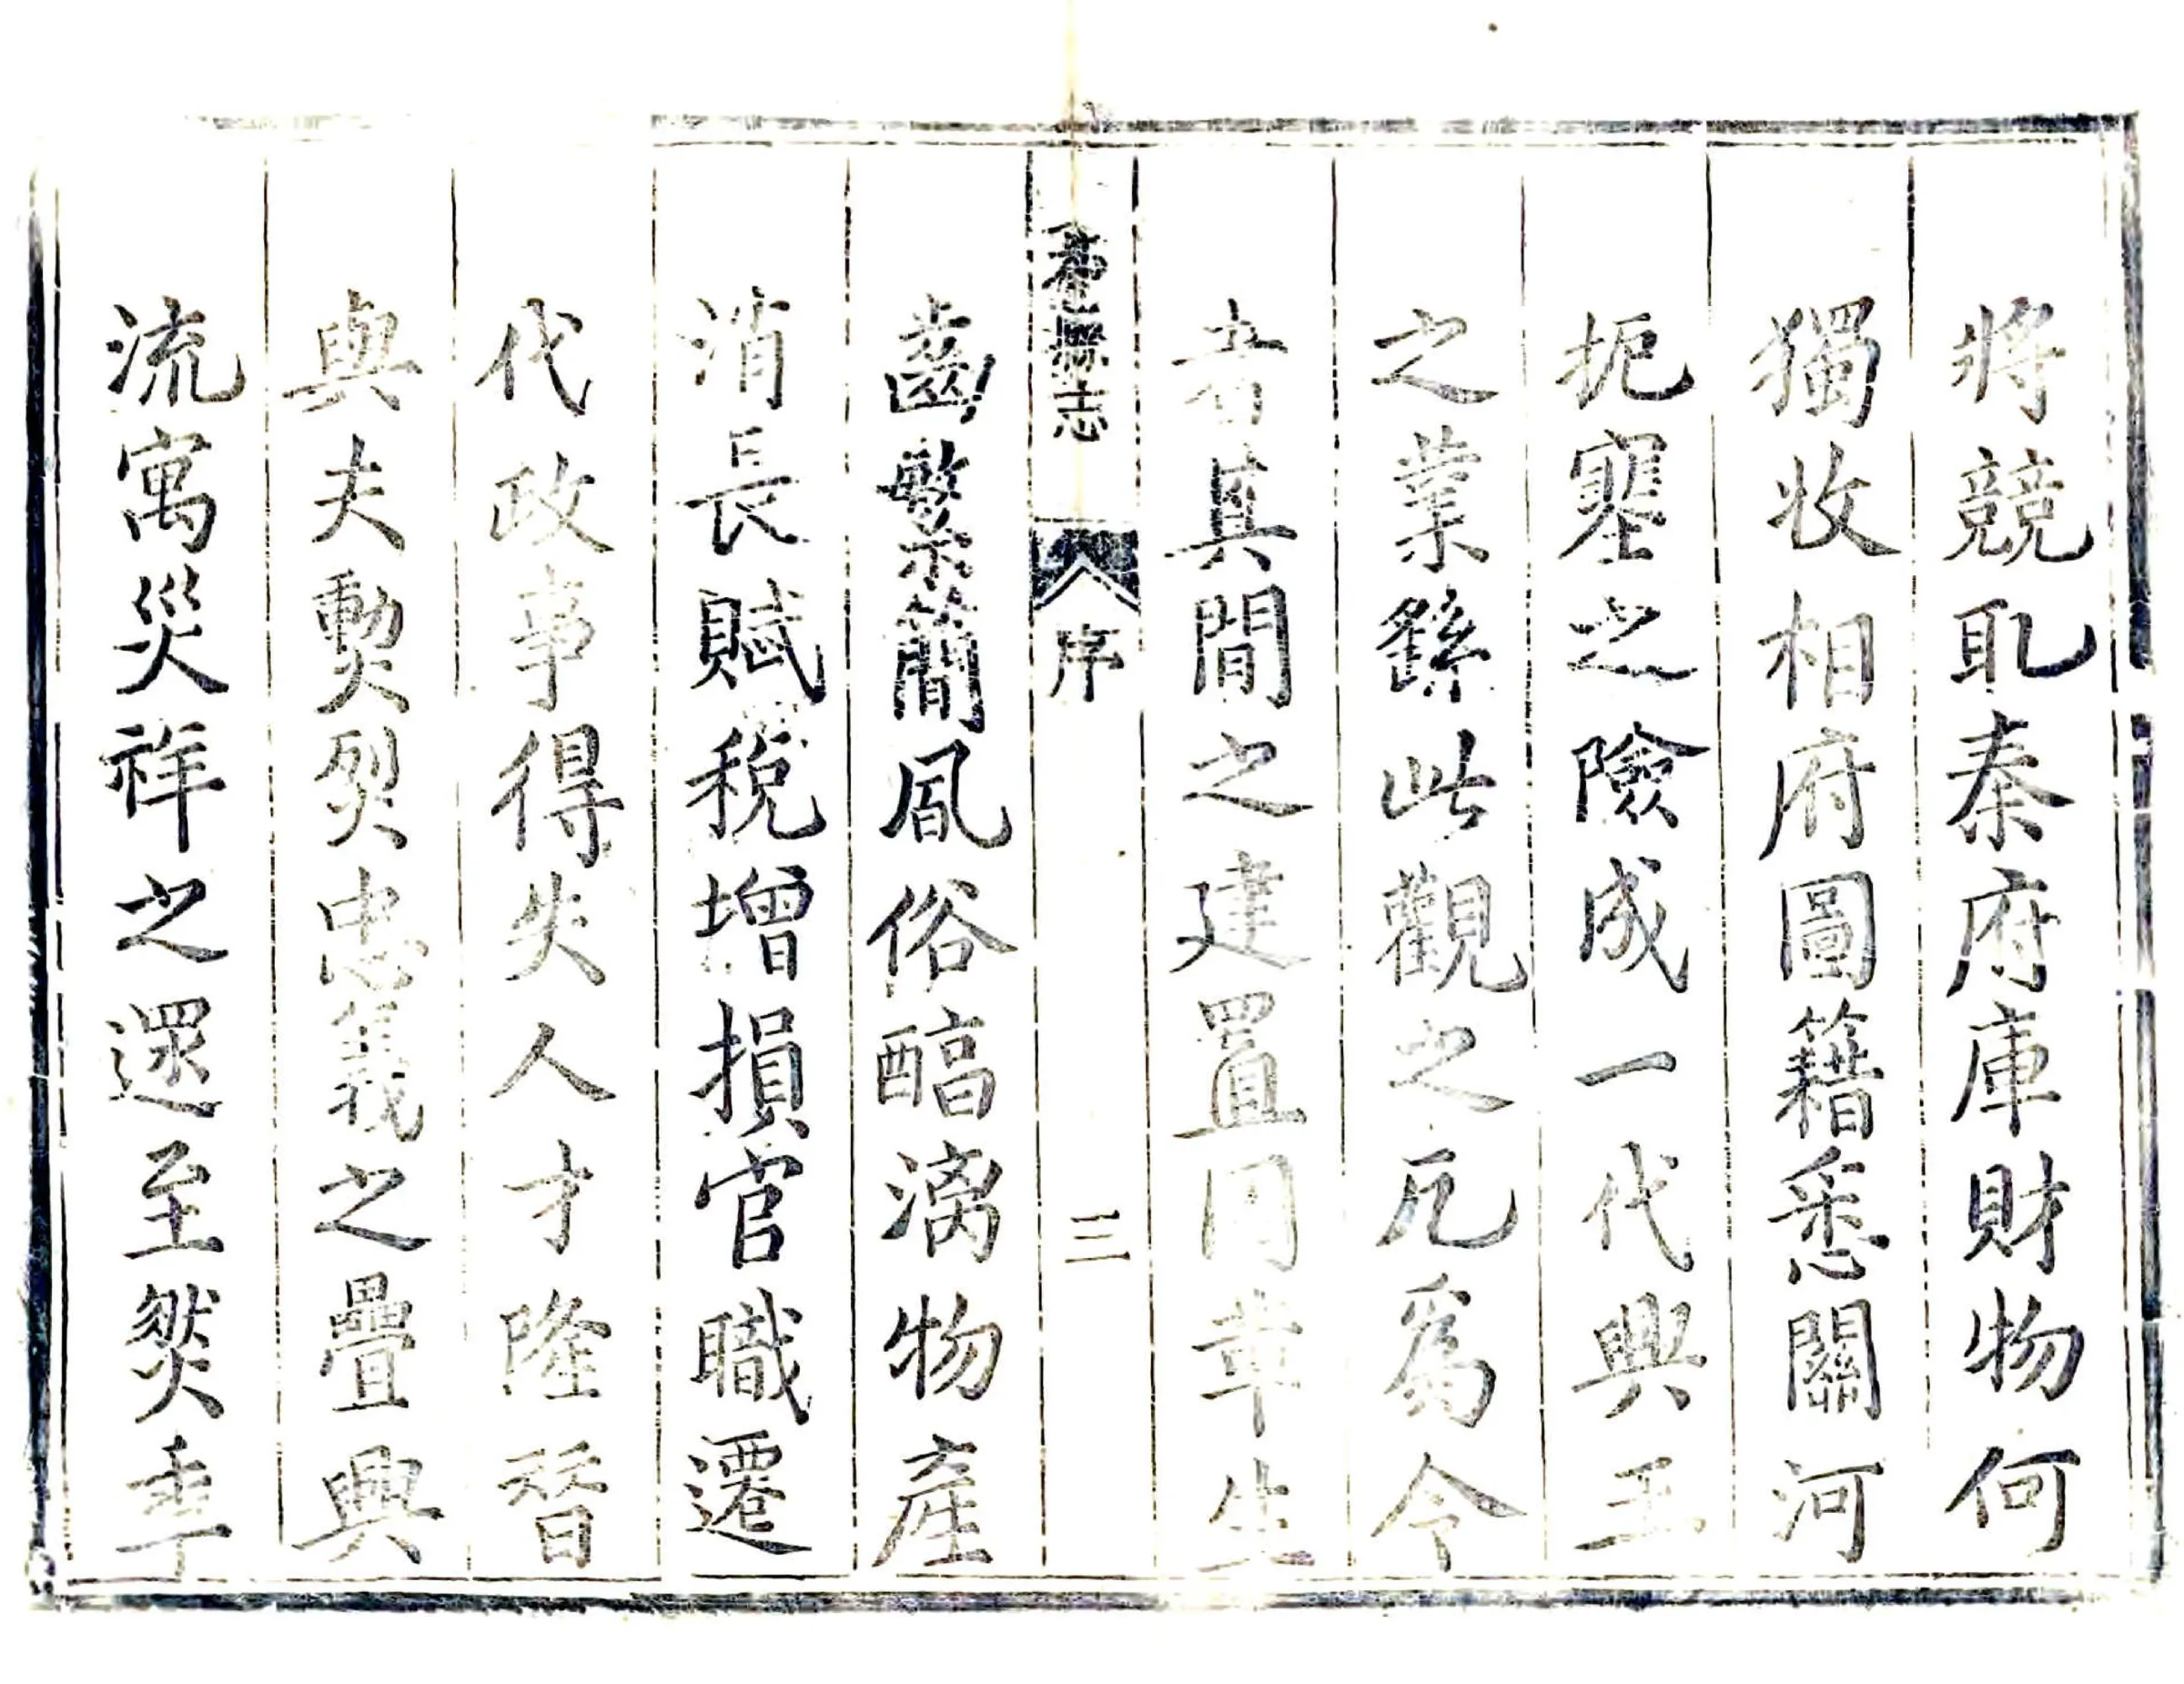 將競取秦府庫財物何
獨收相府圖籍悉關河
扼塞之險成一代興王
之業繇此觀之凡爲今
者其間之建置因革生
齒繁簡風俗醕漓物產
消長賦稅增損官職遷
代政事得失人才隆替
與夫勲烈忠義之疊興
流寓災祥之還至然乎
縣志
序
三